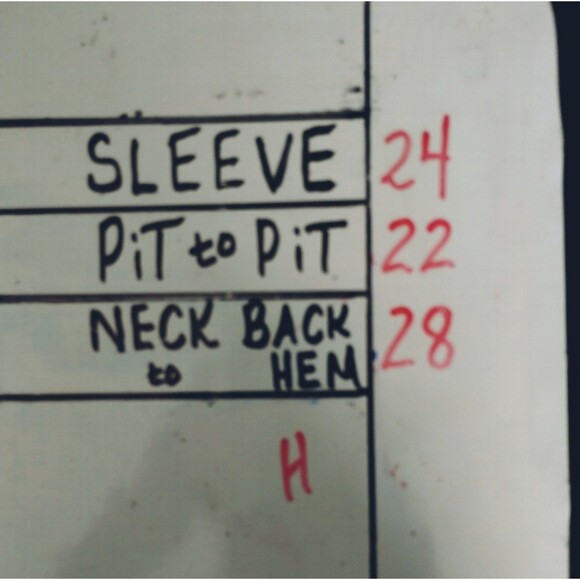 SLEEVE 24
PiT to PiT 22
NECK BACK 28
to HEM
H